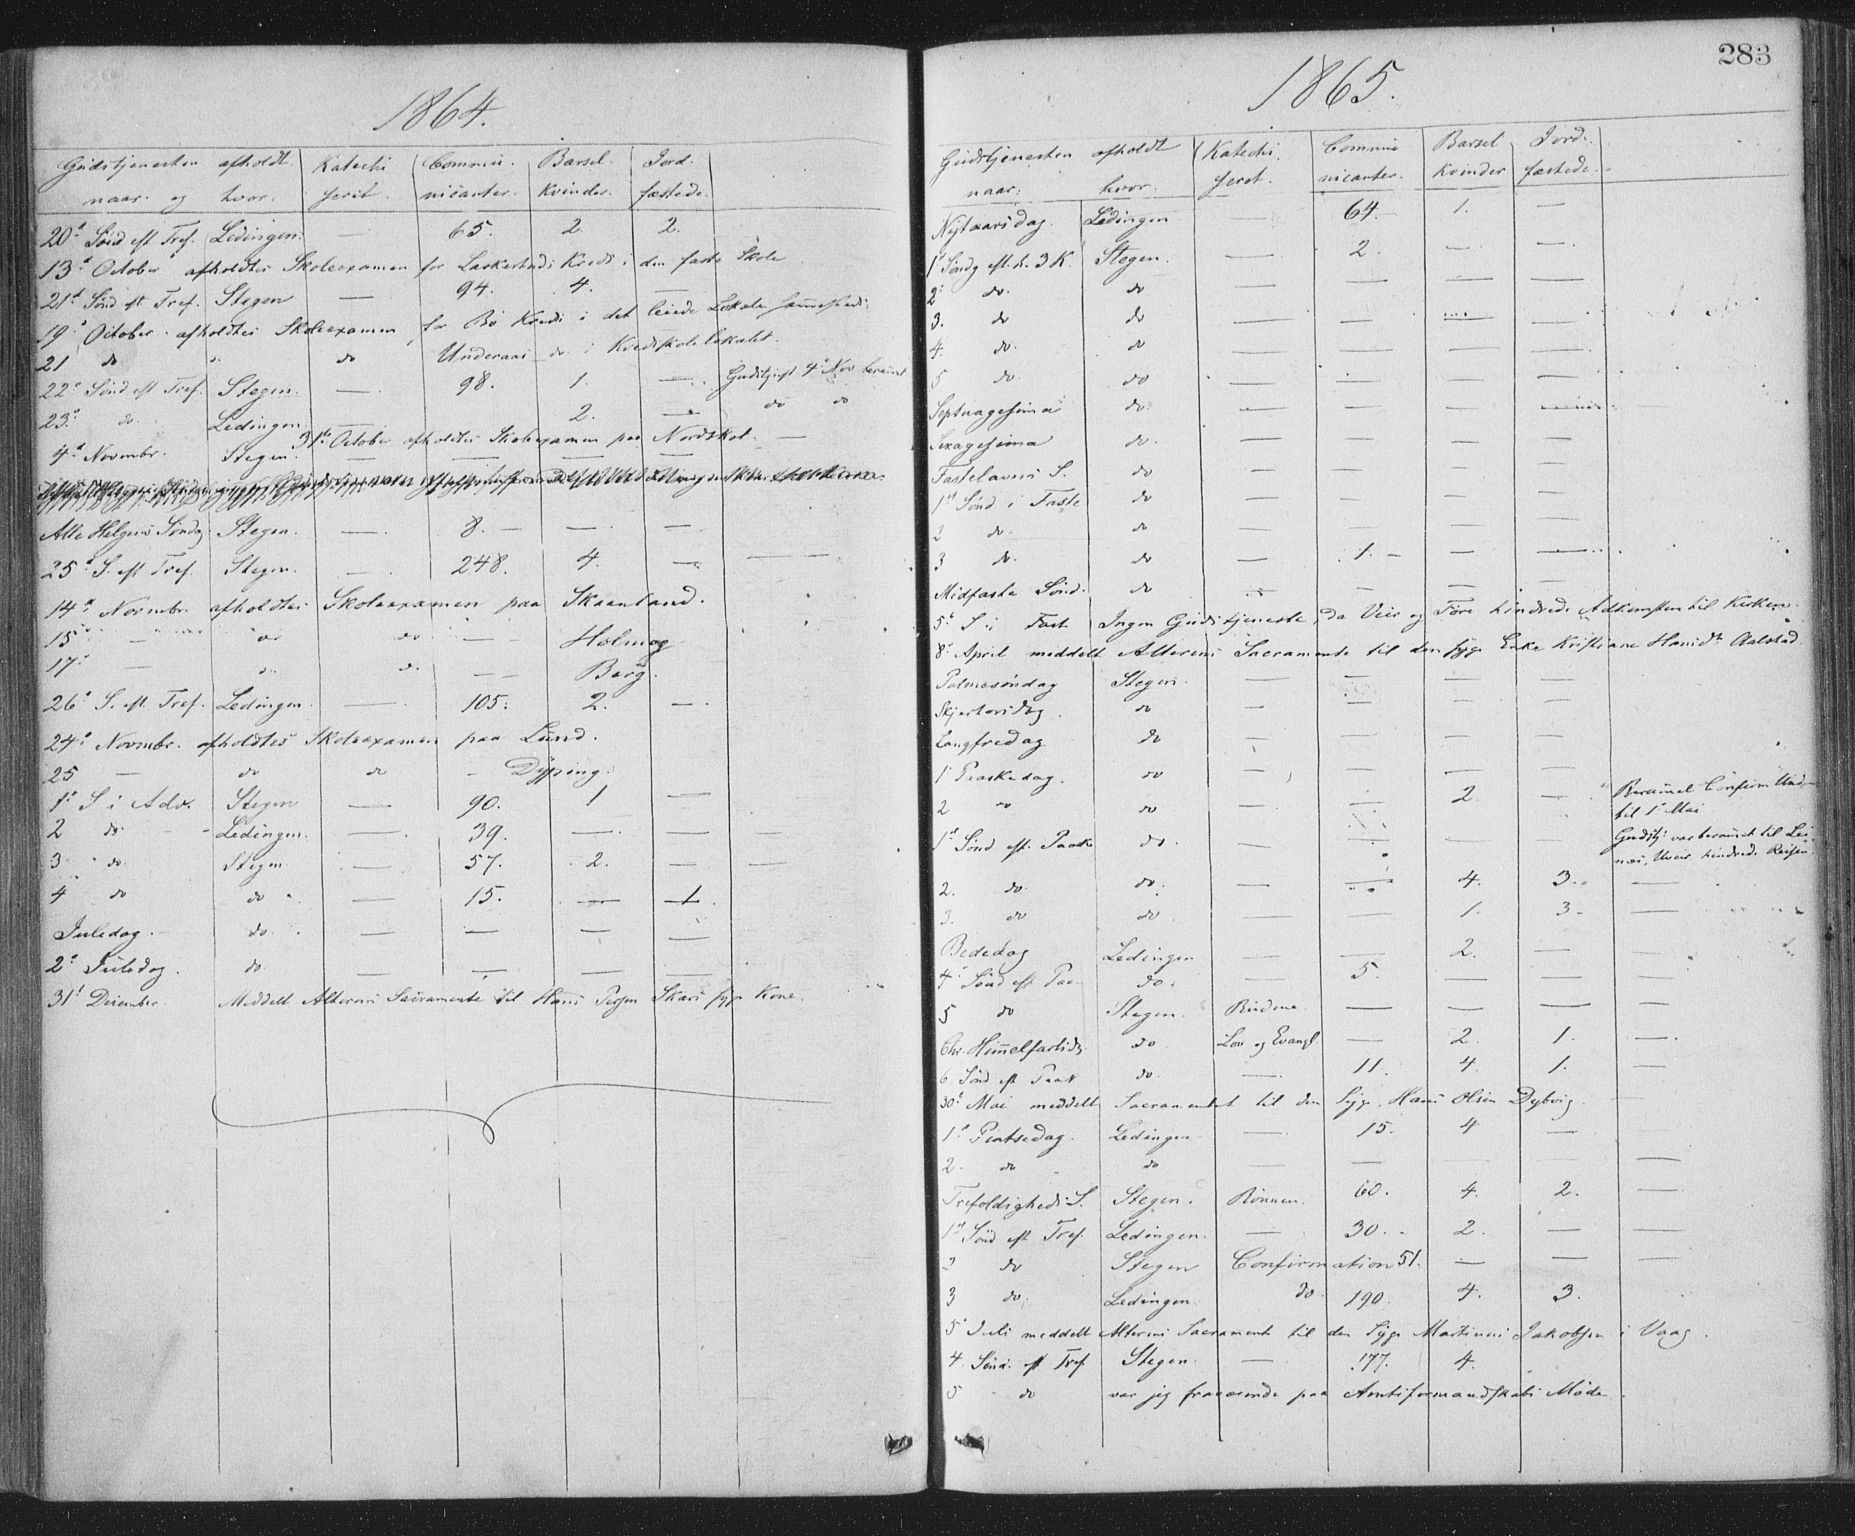 1864.
Gudstjenesten afholdt Katechi Commu- Barsel- Jord-
naar og hvor. seret. nicanter. kvinder. fæstede.
20d Sönd eft Tref. Ledingen. — 65. 2 2.
13d October afholdtes Skoleexamen for Laskestads Kreds i den faste Skole
21d Sönd eft Tref. Stegen — 94. 4. —
19d October afholdtes Skoleexamen for Bö Kreds i det leiede Lokale sammesteds.
21 do do Underaas do i Kredsskolelokalet.
22d Sönd eft Tref. Stegen. — 98. 1. — Gudstj. 4d Nov berammet
23d do Ledingen. — 2. — do do
31d October afholdtes Skoleexamen paa Nordskot. —
4d Novembr. Stegen. — — — —
Alle Helgens Söndag Stegen. — 8. — — —
25d S. eft Tref. Stegen. — 248. 4. — —
14d Novmbr. afholdtes Skoleexamen paa Skaanland.
15d — do do — Holmag
17d — do do — Borg.
26d S. eft Tref. Ledingen. — 105. 2. —
24d Novmbr. afholdtes Skoleexamen paa Lund.
25 — do do — Dyping.
1d S i Adv. Stegen — 90. 1 —
2 do Ledingen. — 39. — — —
3 do Stegen — 57. 2. — —
4 do do — 15. — 1.
Juledag. do. — — — —
2d Juledag. do. — — — —
31d December Meddelt Alterens Sacramente til Hans Persen Skars syge Kone.
283
1865.
Gudstjenesten afholdt Katechi- Commu- Barsel Jord-
naar: hvor. seret. nicanter. kvinder fæstede.
Nytaarsdag. Ledingen — 64. 1. —
1d Söndg eft. h. 3 K. Stegen. — 2. — —
2d do. do — — — —
3. do do — — — —
4. do. do — — — —
5 do. do — — — —
Septuagesima do. — — — —
Sexagesima do. — — — —
Fastelavns S. do — — — —
1d Sönd i Faste do — — — —
2 do. do — — — —
3 do. do — 1. — —
Midfaste Sönd. do — — — —
5d S. i Fast Ingen Gudstjeneste, da Veir og Före hindrede Adkomsten til Kirken.
8d April meddelt Alterens Sacramente til den syge Enke Kristiane Hansdt Aalstad
Palmesöndag Stegen. — — — —
Skjertorsdag. do — — — —
Langfredag do — — — —
1 Paaskedag. do — — — —
2 do do — — 2. — Berammet Confirm Und.
til 1d Mai
1d Sönd eft. Paaske do. — — — — Gudstj. var berammet til Lei-
nes, Uveir hindrede Reisen
2. do do. — — 4. 3. —
3. do do — — 1. 3. —
Bededag Ledingen — — 2. —
4d Sönd eft Paa do. — 5. — —
5 do Stegen. Budene — — — —
Chr. Himmelfartsdg. do Lov og Evangl. — 2. 1. —
6. Sönd eft Paask do. — 11. 4. 1. —
30d Mai meddelt Sacramentet til den syge Hans Olsen Dybvig.
1d Pintsedag. Ledingen — 15. 4 —
2. do do — — — — —
Trefoldigheds S. Stegen. Bönnen. 60. 4. 2. —
1d Sönd eft Tref. Ledingen. — 30. 2. — —
2 do Stegen Confirmation 51. — — —
3 do. Ledingen. do. 190. 4. 3.
5d Juli meddelt Alterens Sacrament til den syge Martinus Jakobsen i Vaag.
4. Sönd. eft Tref Stegen. — 177. 4.
5 do var jeg fraværende paa Amtsformandskabs Möde.